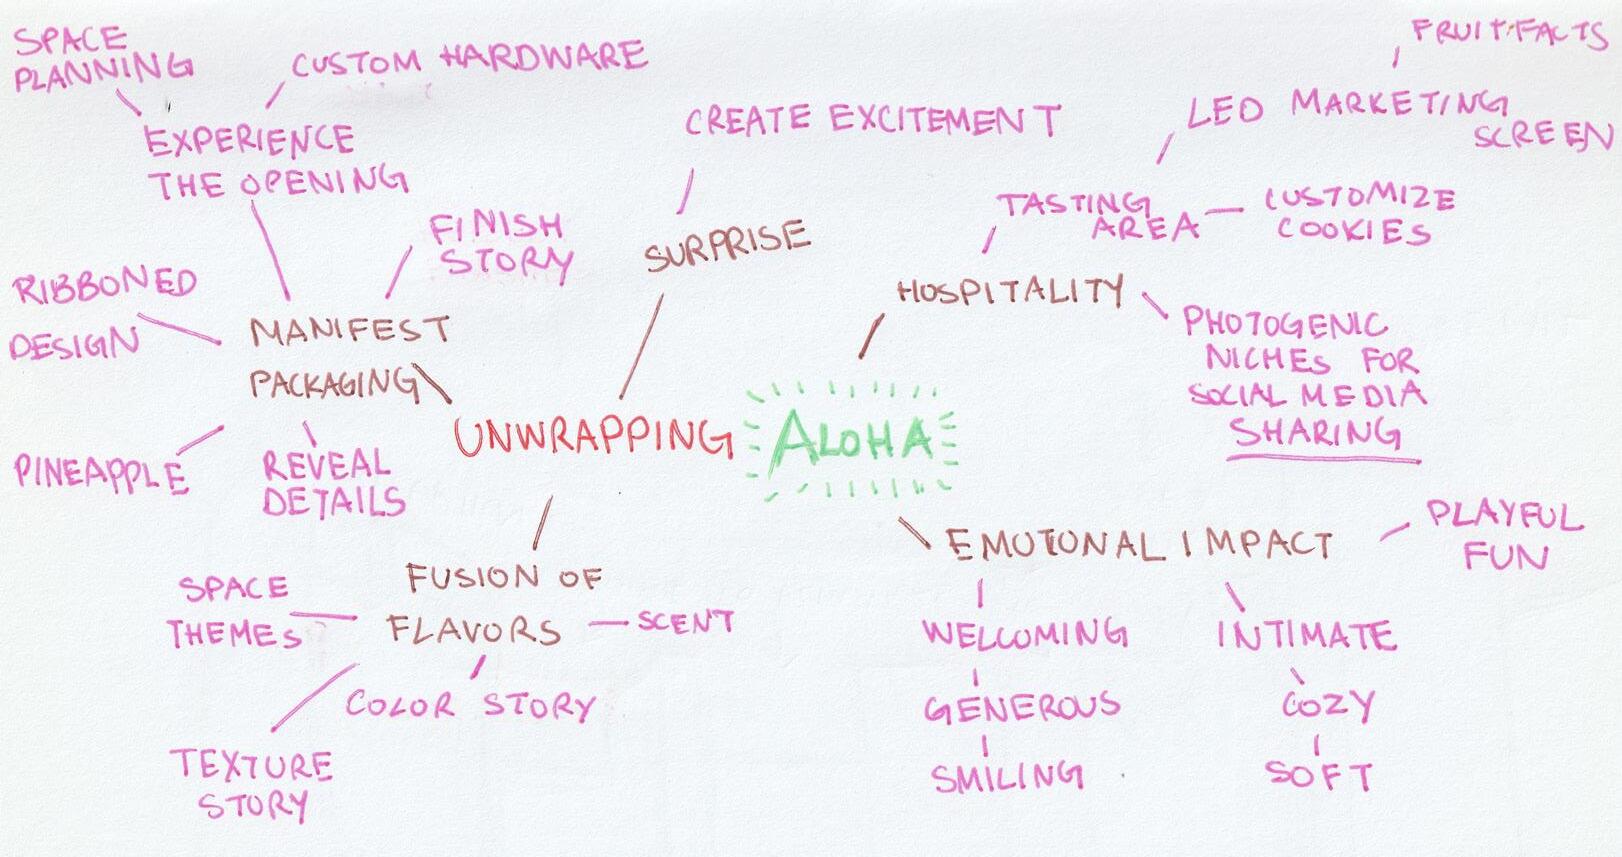 SPACE
PLANNING
CUSTOM HARDWARE
EXPERIENCE
THE OPENING
FINISH
STORY
RIBBONED
DESIGN
MANIFEST
PACKAGING
PINEAPPLE
REVEAL
DETAILS
CREATE EXCITEMENT
SURPRISE
UNWRAPPING
ALOHA
FRUIT FACTS
LED MARKETING
SCREEN
TASTING
AREA
CUSTOMIZE
COOKIES
HOSPITALITY
PHOTOGENIC
NICHES FOR
SOCIAL MEDIA
SHARING
FUSION OF
FLAVORS
SPACE
THEMES
SCENT
COLOR STORY
TEXTURE
STORY
EMOTIONAL IMPACT
PLAYFUL
FUN
WELCOMING
GENEROUS
SMILING
INTIMATE
COZY
SOFT